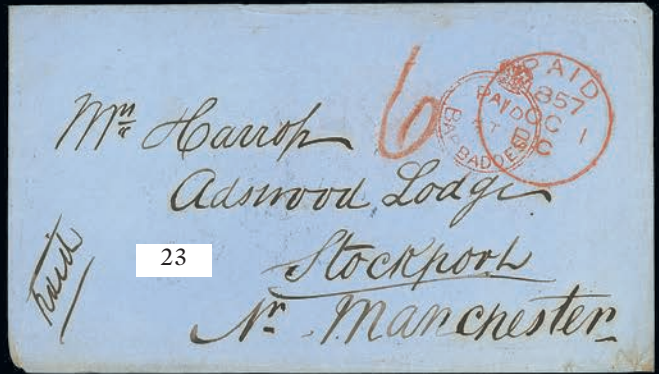 6
PAID
1857
OC 1
BC
PAID
AT
BARBADOES
Mrs Harrop
Adswood Lodge
Stockport
Nr. Manchester
Paid
23